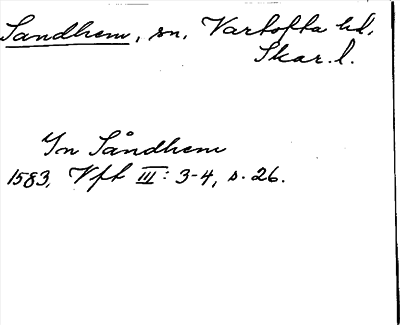 Sandhem, sn, Vartofta hd,
Skar. l.
Jn Såndhem
1583, Vft III: 3-4, s. 26.